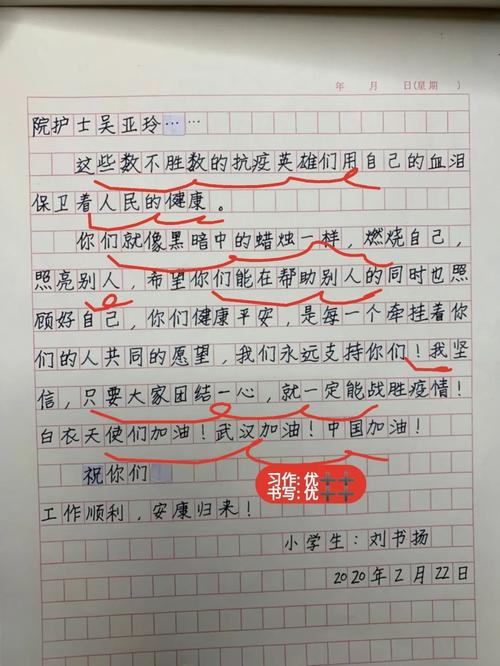 年 月 日(星期 )
院护士吴亚玲……
这些数不胜数的抗疫英雄们用自己的血泪
保卫着人民的健康。
你们就像黑暗中的蜡烛一样，燃烧自己，
照亮别人，希望你们能在帮助别人的同时也照
顾好自己，你们健康平安，是每一个牵挂着你
们的人共同的愿望，我们永远支持你们！我坚
信，只要大家团结一心，就一定能战胜疫情！
白衣天使们加油！武汉加油！中国加油！
祝你们
习作:优++
书写:优++
工作顺利，安康归来！
小学生：刘书扬
2020年2月22日